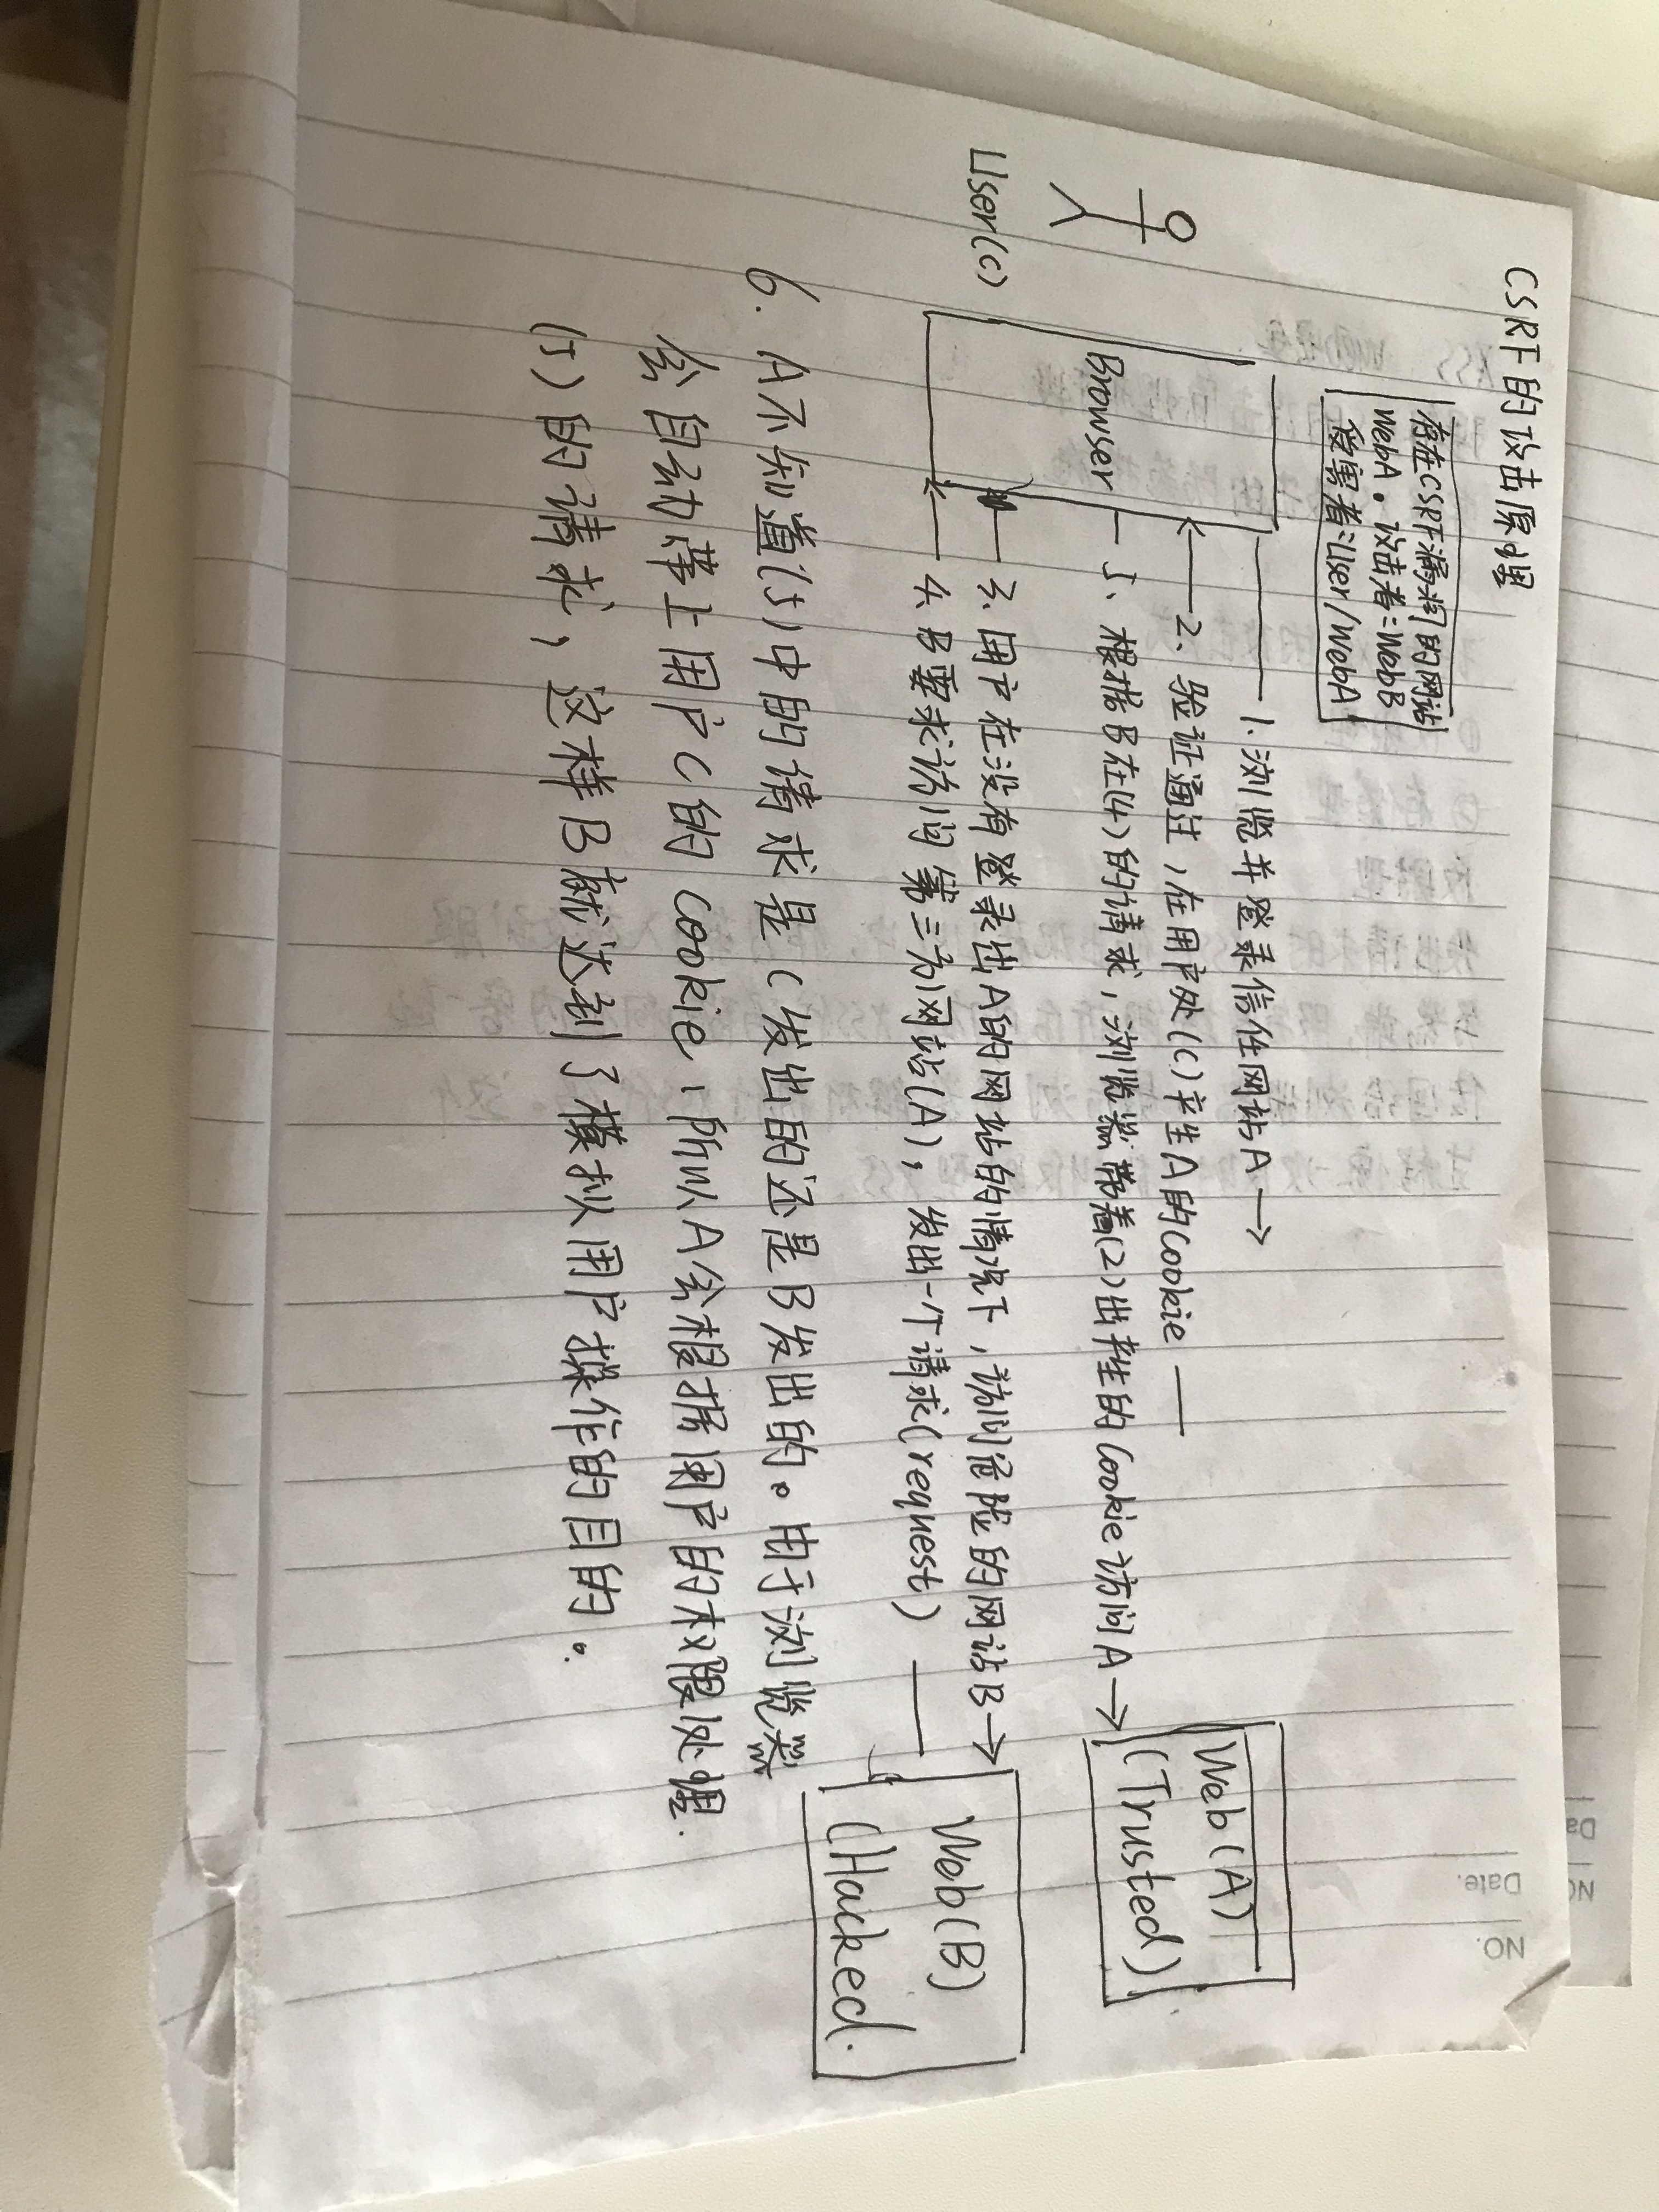 CSRF的攻击原理
存在CSRF漏洞的网站
WebA。攻击者=WebB
受害者=User/WebA
User(C)
Browser
1、浏览并登录信任网站A→
2、验证通过,在用户处(C)产生A的Cookie
5、根据B在(4)的请求,浏览器带着(2)出产生的Cookie访问A→
3、用户在没有登录出A的网站的情况下,访问危险的网站B→
4、B要求访问第三方网站(A),发出一个请求(request)
Web(A)
(Trusted)
Web(B)
(Hacked.
6. A不知道(5)中的请求是C发出的还是B发出的。由于浏览器
会自动带上用户C的Cookie,所以A会根据用户的权限处理.
(5)的请求,这样B就达到了模拟用户操作的目的。
NO.
Date.